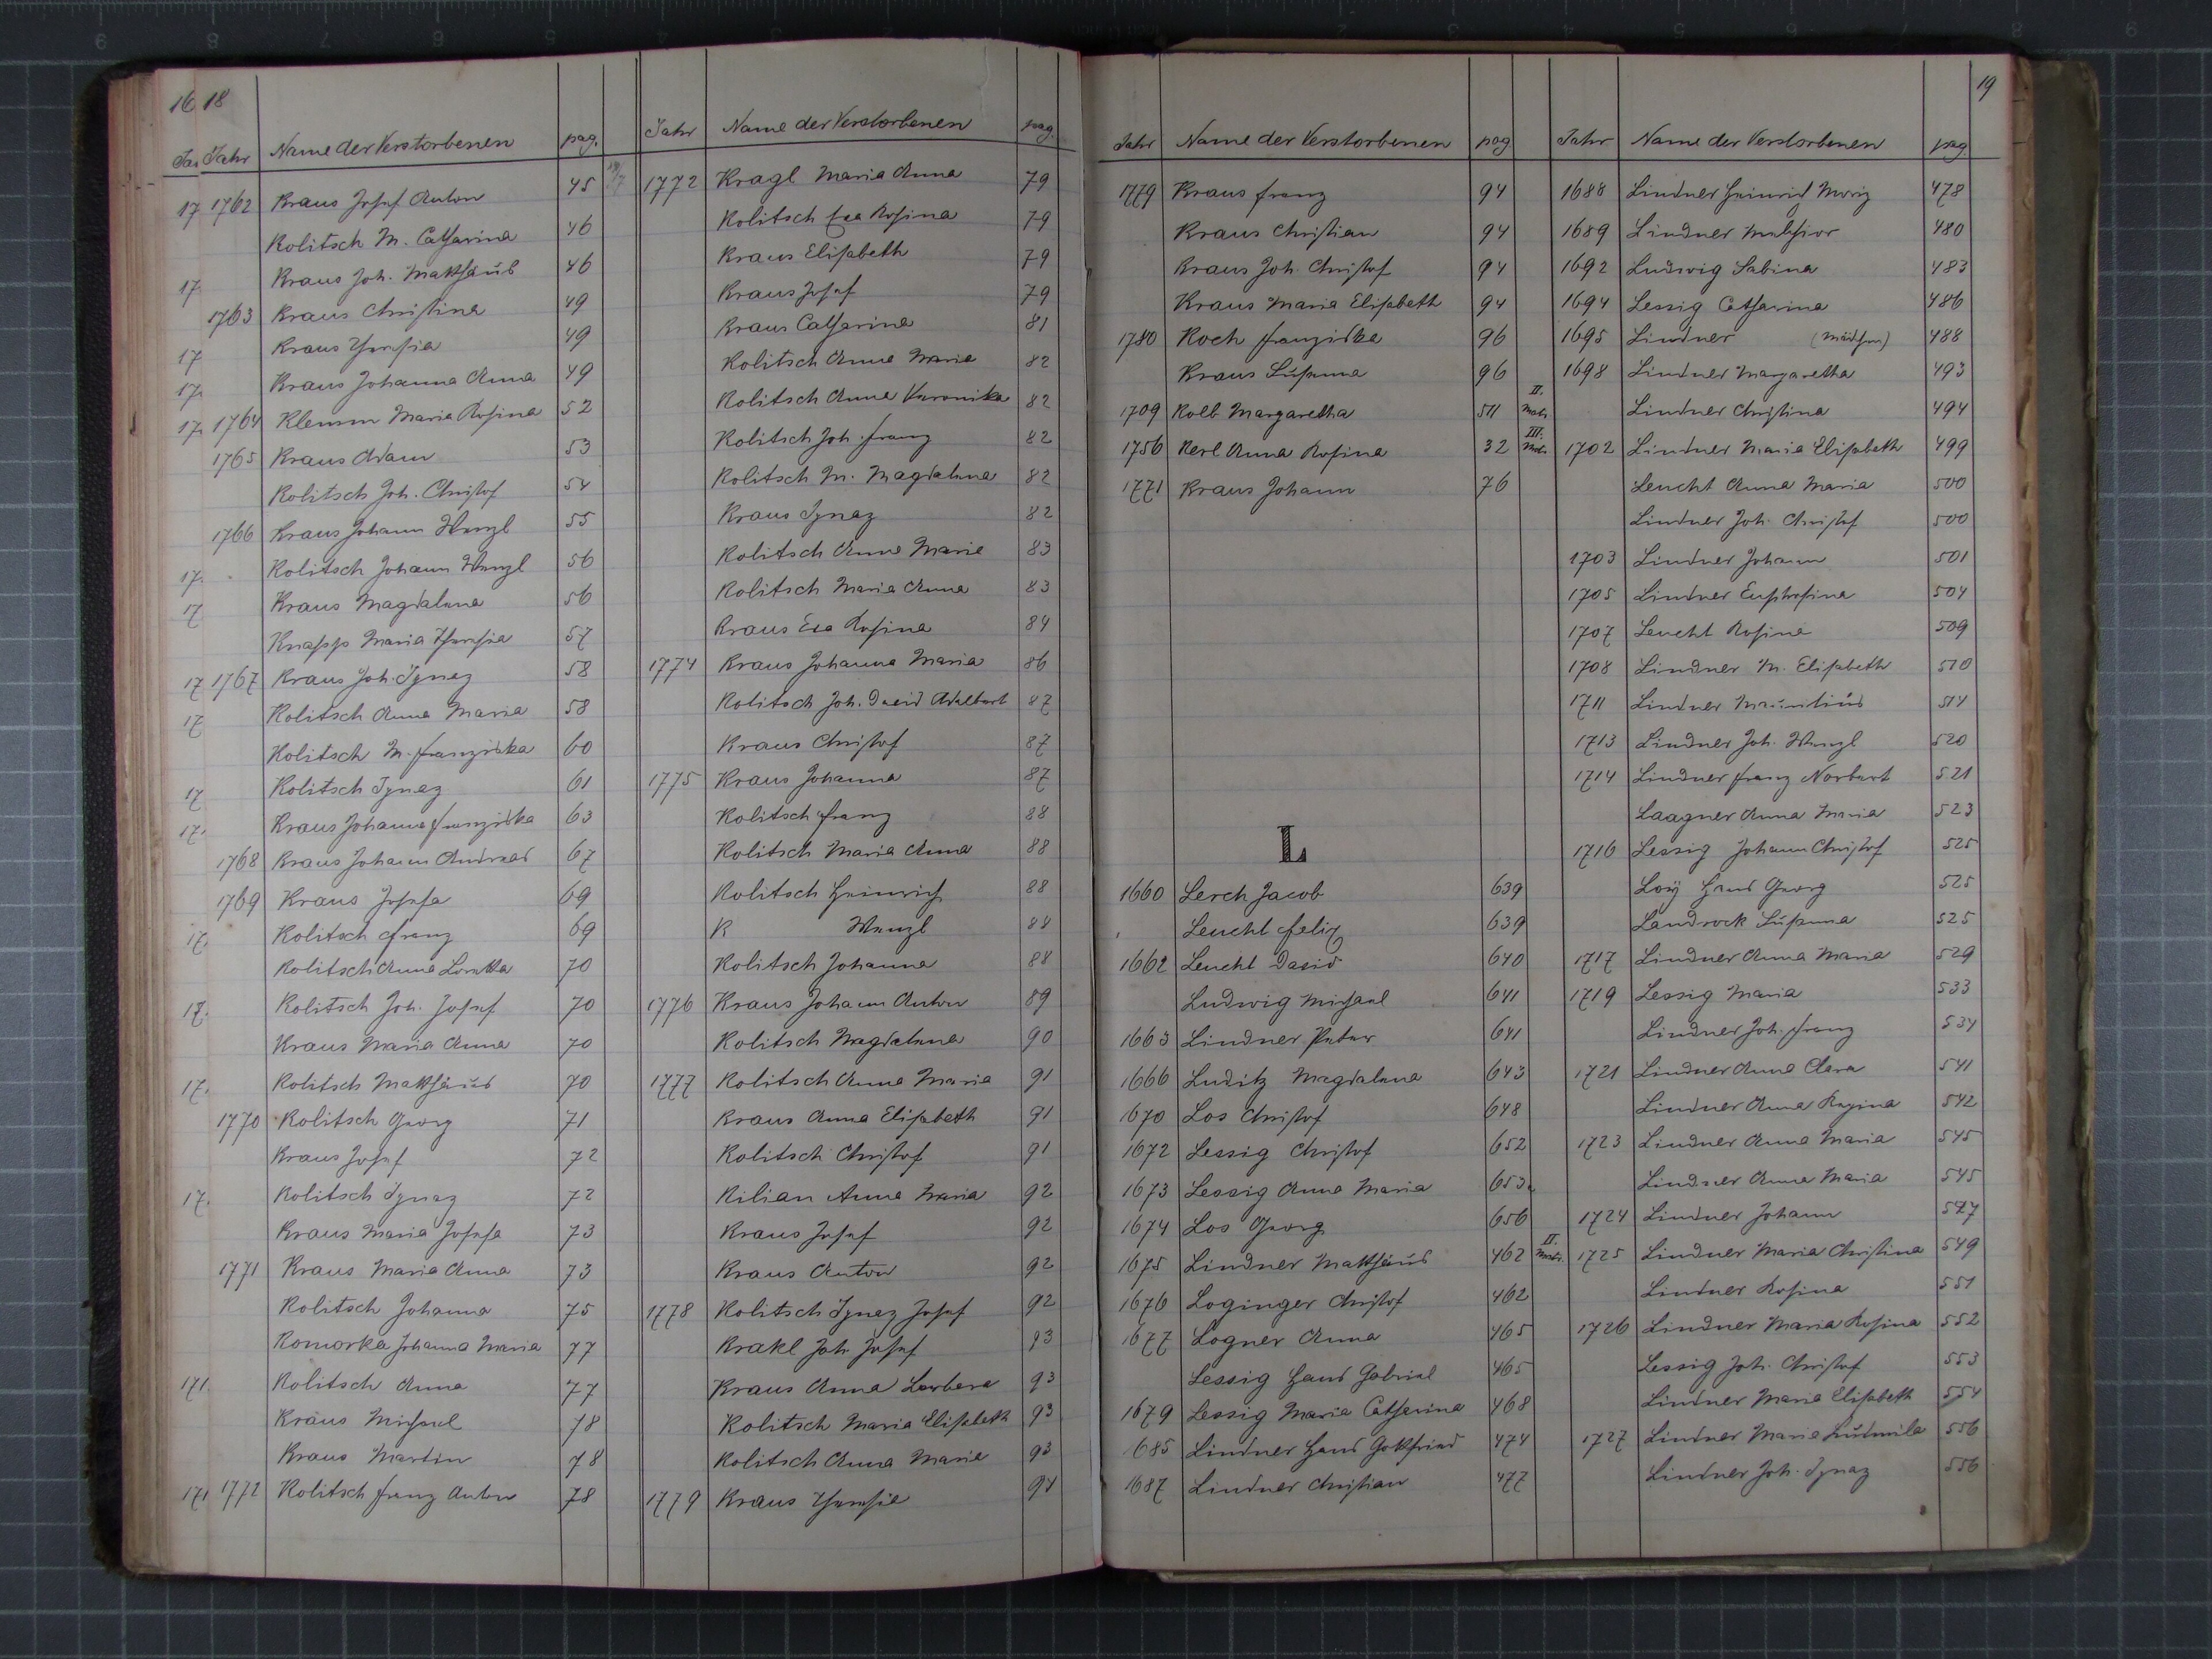 16 18
Jahr Name der Verstorbenen pag.
1762 Kraus Josef Anton 45
Kolitsch M. Catharina 46
Kraus Joh. Matthäus 46
1763 Kraus Christina 49
Kraus Theresia 49
Kraus Johanna Anna 49
1764 Klemm Maria Rosina 52
1765 Kraus Adam 53
Kolitsch Joh. Christof 54
1766 Kraus Johann Wenzl 55
Kolitsch Johann Wenzl 56
Kraus Magdalena 56
Knapp Maria Theresia 57
1767 Kraus Joh. Ignaz 58
Kolitsch Anna Maria 58
Kolitsch M. Franziska 60
Kolitsch Ignaz 61
Kraus Johanna Franziska 63
1768 Kraus Johann Andreas 67
1769 Kraus Josefa 69
Kolitsch Franz 69
Kolitsch Anna Loretta 70
Kolitsch Joh. Josef 70
Kraus Maria Anna 70
Kolitsch Matthäus 70
1770 Kolitsch Georg 71
Kraus Josef 72
Kolitsch Ignaz 72
Kraus Maria Josefa 73
1771 Kraus Maria Anna 73
Kolitsch Johanna 75
Komorka Johanna Maria 77
Kolitsch Anna 77
Kraus Michael 78
Kraus Martin 78
1772 Kolitsch Franz Anton 78
Jahr Name der Verstorbenen pag.
1772 Kragl Maria Anna 79
Kolitsch Eva Rosina 79
Kraus Elisabeth 79
Kraus Josef 79
Kraus Catharina 81
Kolitsch Anna Maria 82
Kolitsch Anna Veronika 82
Kolitsch Joh. Franz 82
Kolitsch M. Magdalena 82
Kraus Ignaz 82
Kolitsch Anna Maria 83
Kolitsch Maria Anna 83
Kraus Eva Rosina 84
1774 Kraus Johanna Maria 86
Kolitsch Joh. David Adalbert 87
Kraus Christof 87
1775 Kraus Johanna 87
Kolitsch Franz 88
Kolitsch Maria Anna 88
Kolitsch Heinrich 88
K Wenzl 88
Kolitsch Johanna 88
1776 Kraus Johann Anton 89
Kolitsch Magdalena 90
1777 Kolitsch Anna Maria 91
Kraus Anna Elisabeth 91
Kolitsch Christof 91
Kilian Anna Maria 92
Kraus Josef 92
Kraus Anton 92
1778 Kolitsch Ignaz Josef 92
Krakl Joh. Josef 93
Kraus Anna Barbara 93
Kolitsch Maria Elisabeth 93
Kolitsch Anna Maria 93
1779 Kraus Theresia 94
Jahr Name der Verstorbenen pag
1779 Kraus Franz 94
Kraus Christian 94
Kraus Joh. Christof 94
Kraus Maria Elisabeth 94
1780 Koch Franziska 96
Kraus Susanna 96
1709 Kolb Margaretha 511 II. Matr.
1756 Kerl Anna Rosina 32 III. Matr.
1771 Kraus Johann 76
L
1660 Lerch Jacob 639
Leucht Felix 639
1662 Leucht David 640
Ludwig Michael 641
1663 Lindner Peter 641
1666 Luditz Magdalena 643
1670 Los Christof 648
1672 Lessig Christof 652
1673 Lessig Anna Maria 653
1674 Los Georg 656
1675 Lindner Matthäus 462 II. Matr.
1676 Loginger Christof 462
1677 Logner Anna 465
Lessig Hans Gabriel 465
1679 Lessig Maria Catharina 468
1685 Lindner Hans Gottfried 474
1687 Lindner Christian 477
19
Jahr Name der Verstorbenen pag.
1688 Lindner Heinrich Moriz 478
1689 Lindner Melchior 480
1692 Ludwig Sabina 483
1694 Lessig Catharina 486
1695 Lindner (Mädchen) 488
1698 Lindner Margaretha 493
Lindner Christina 494
1702 Lindner Maria Elisabeth 499
Leucht Anna Maria 500
Lindner Joh. Christof 500
1703 Lindner Johann 501
1705 Lindner Euphrosina 504
1707 Leucht Rosina 509
1708 Lindner M. Elisabeth 510
1711 Lindner Mauritius 514
1713 Lindner Joh. Wenzl 520
1714 Lindner Franz Norbert 521
Laagner Anna Maria 523
1716 Lessig Johann Christof 525
Loÿ Hans Georg 525
Landrock Susanna 525
1717 Lindner Anna Maria 529
1719 Lessig Maria 533
Lindner Joh. Franz 534
1721 Lindner Anna Clara 541
Lindner Anna Regina 542
1723 Lindner Anna Maria 545
Lindner Anna Maria 545
1724 Lindner Johann 547
1725 Lindner Maria Christina 549
Lindner Rosina 551
1726 Lindner Maria Rosina 552
Lessig Joh. Christof 553
Lindner Maria Elisabeth 554
1727 Lindner Maria Ludmila 556
Lindner Joh. Ignaz 556